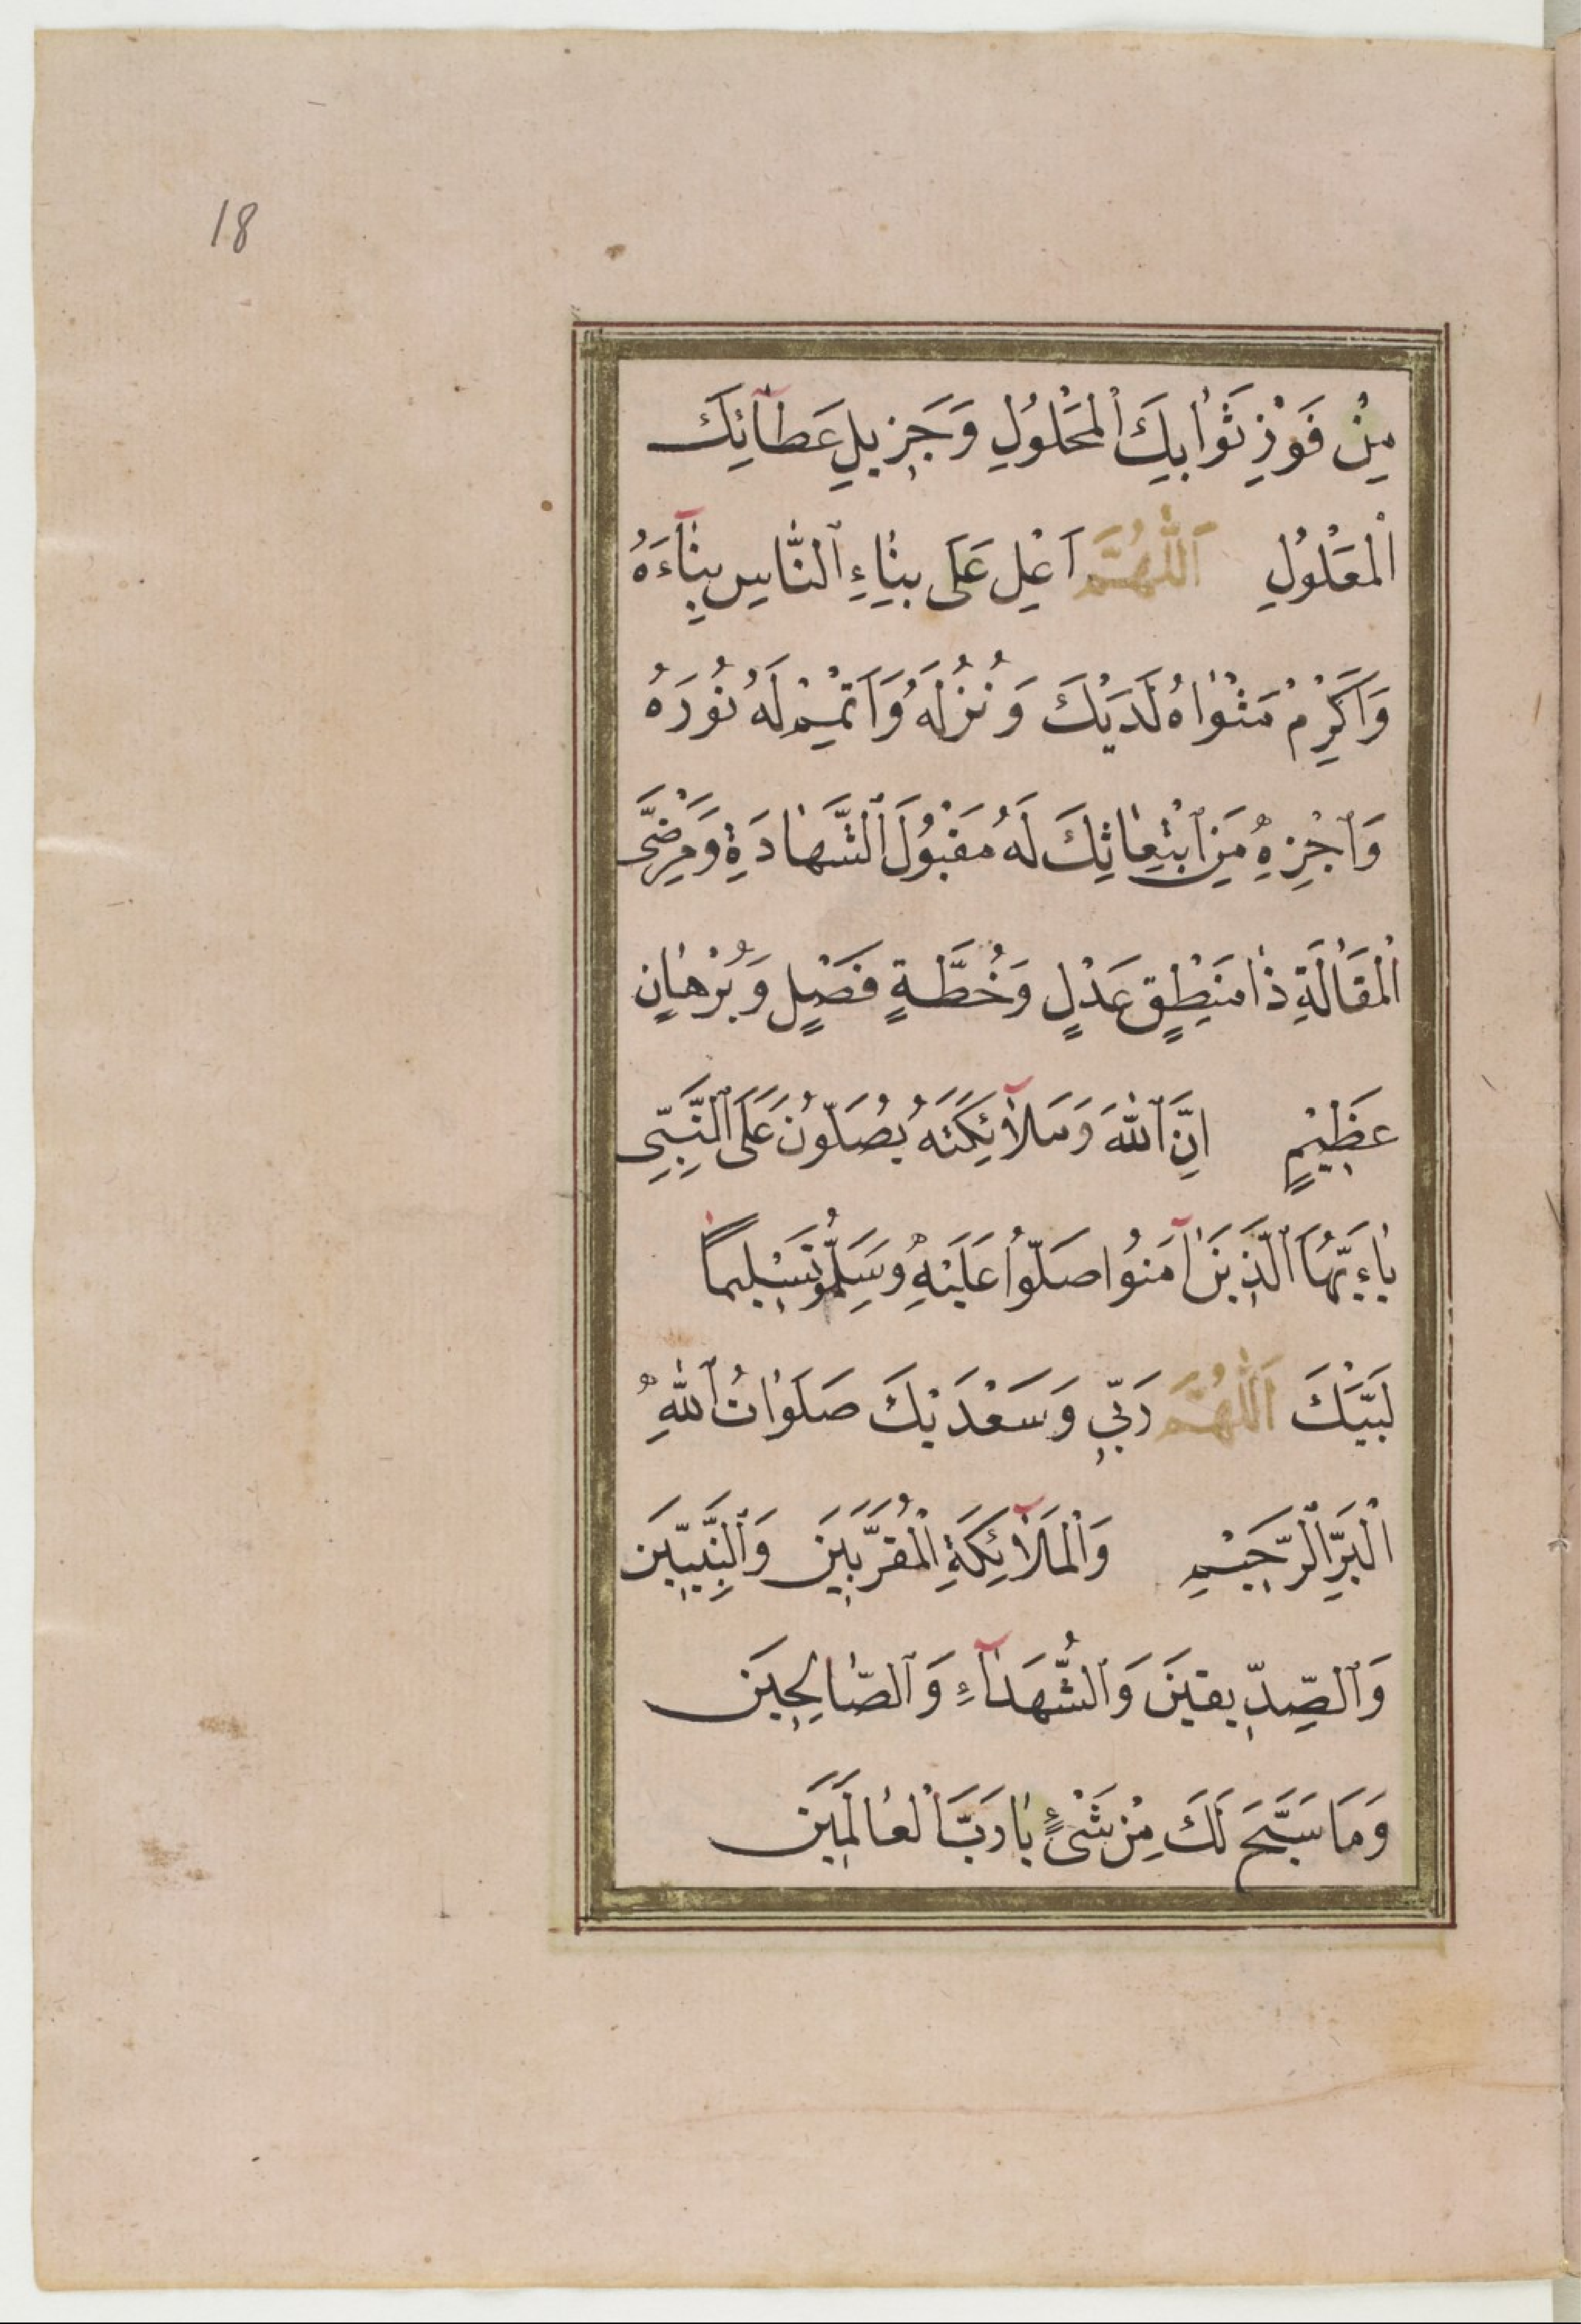 18
مِنْ فَوْزِ ثَوَابِكَ الْمَحْلُولِ وَجَزِيلِ عَطَآئِكَ
الْمَعْلُولِ اَللّٰهُمَّ اَعْلِ عَلَى بِنَاءِ النَّاسِ بِنَآءَهُ
وَاَكْرِمْ مَثْوَاهُ لَدَيْكَ وَنُزُلَهُ وَاَتْمِمْ لَهُ نُورَهُ
وَاجْزِهِ مِنَ ابْتِعَاثِكَ لَهُ مَقْبُولَ الشَّهَادَةِ وَمَرْضِىَّ
الْمَقَالَةِ ذَا مَنْطِقٍ عَدْلٍ وَخُطَّةٍ فَصْلٍ وَبُرْهَانٍ
عَظِيْمٍ اِنَّ اللّٰهَ وَمَلٰٓائِكَتَهُ يُصَلُّونَ عَلَى النَّبِىِّ
يٰاءَيُّهَا الَّذِينَ اٰمَنُوا صَلُّوا عَلَيْهِ وَسَلِّمُو تَسْلِيمًا
لَبَّيْكَ اَللّٰهُمَّ رَبِّي وَسَعْدَيْكَ صَلَوَاتُ اللّٰهِ
الْبَرِّ الرَّحِيْمِ وَالْمَلٰٓائِكَةِ الْمُقَرَّبِينَ وَالنَّبِيِّينَ
وَالصِّدِّيقِينَ وَالشُّهَدَآءِ وَالصَّالِحِينَ
وَمَا سَبَّحَ لَكَ مِنْ شَىْءٍ يَا رَبَّ الْعَالَمِينَ